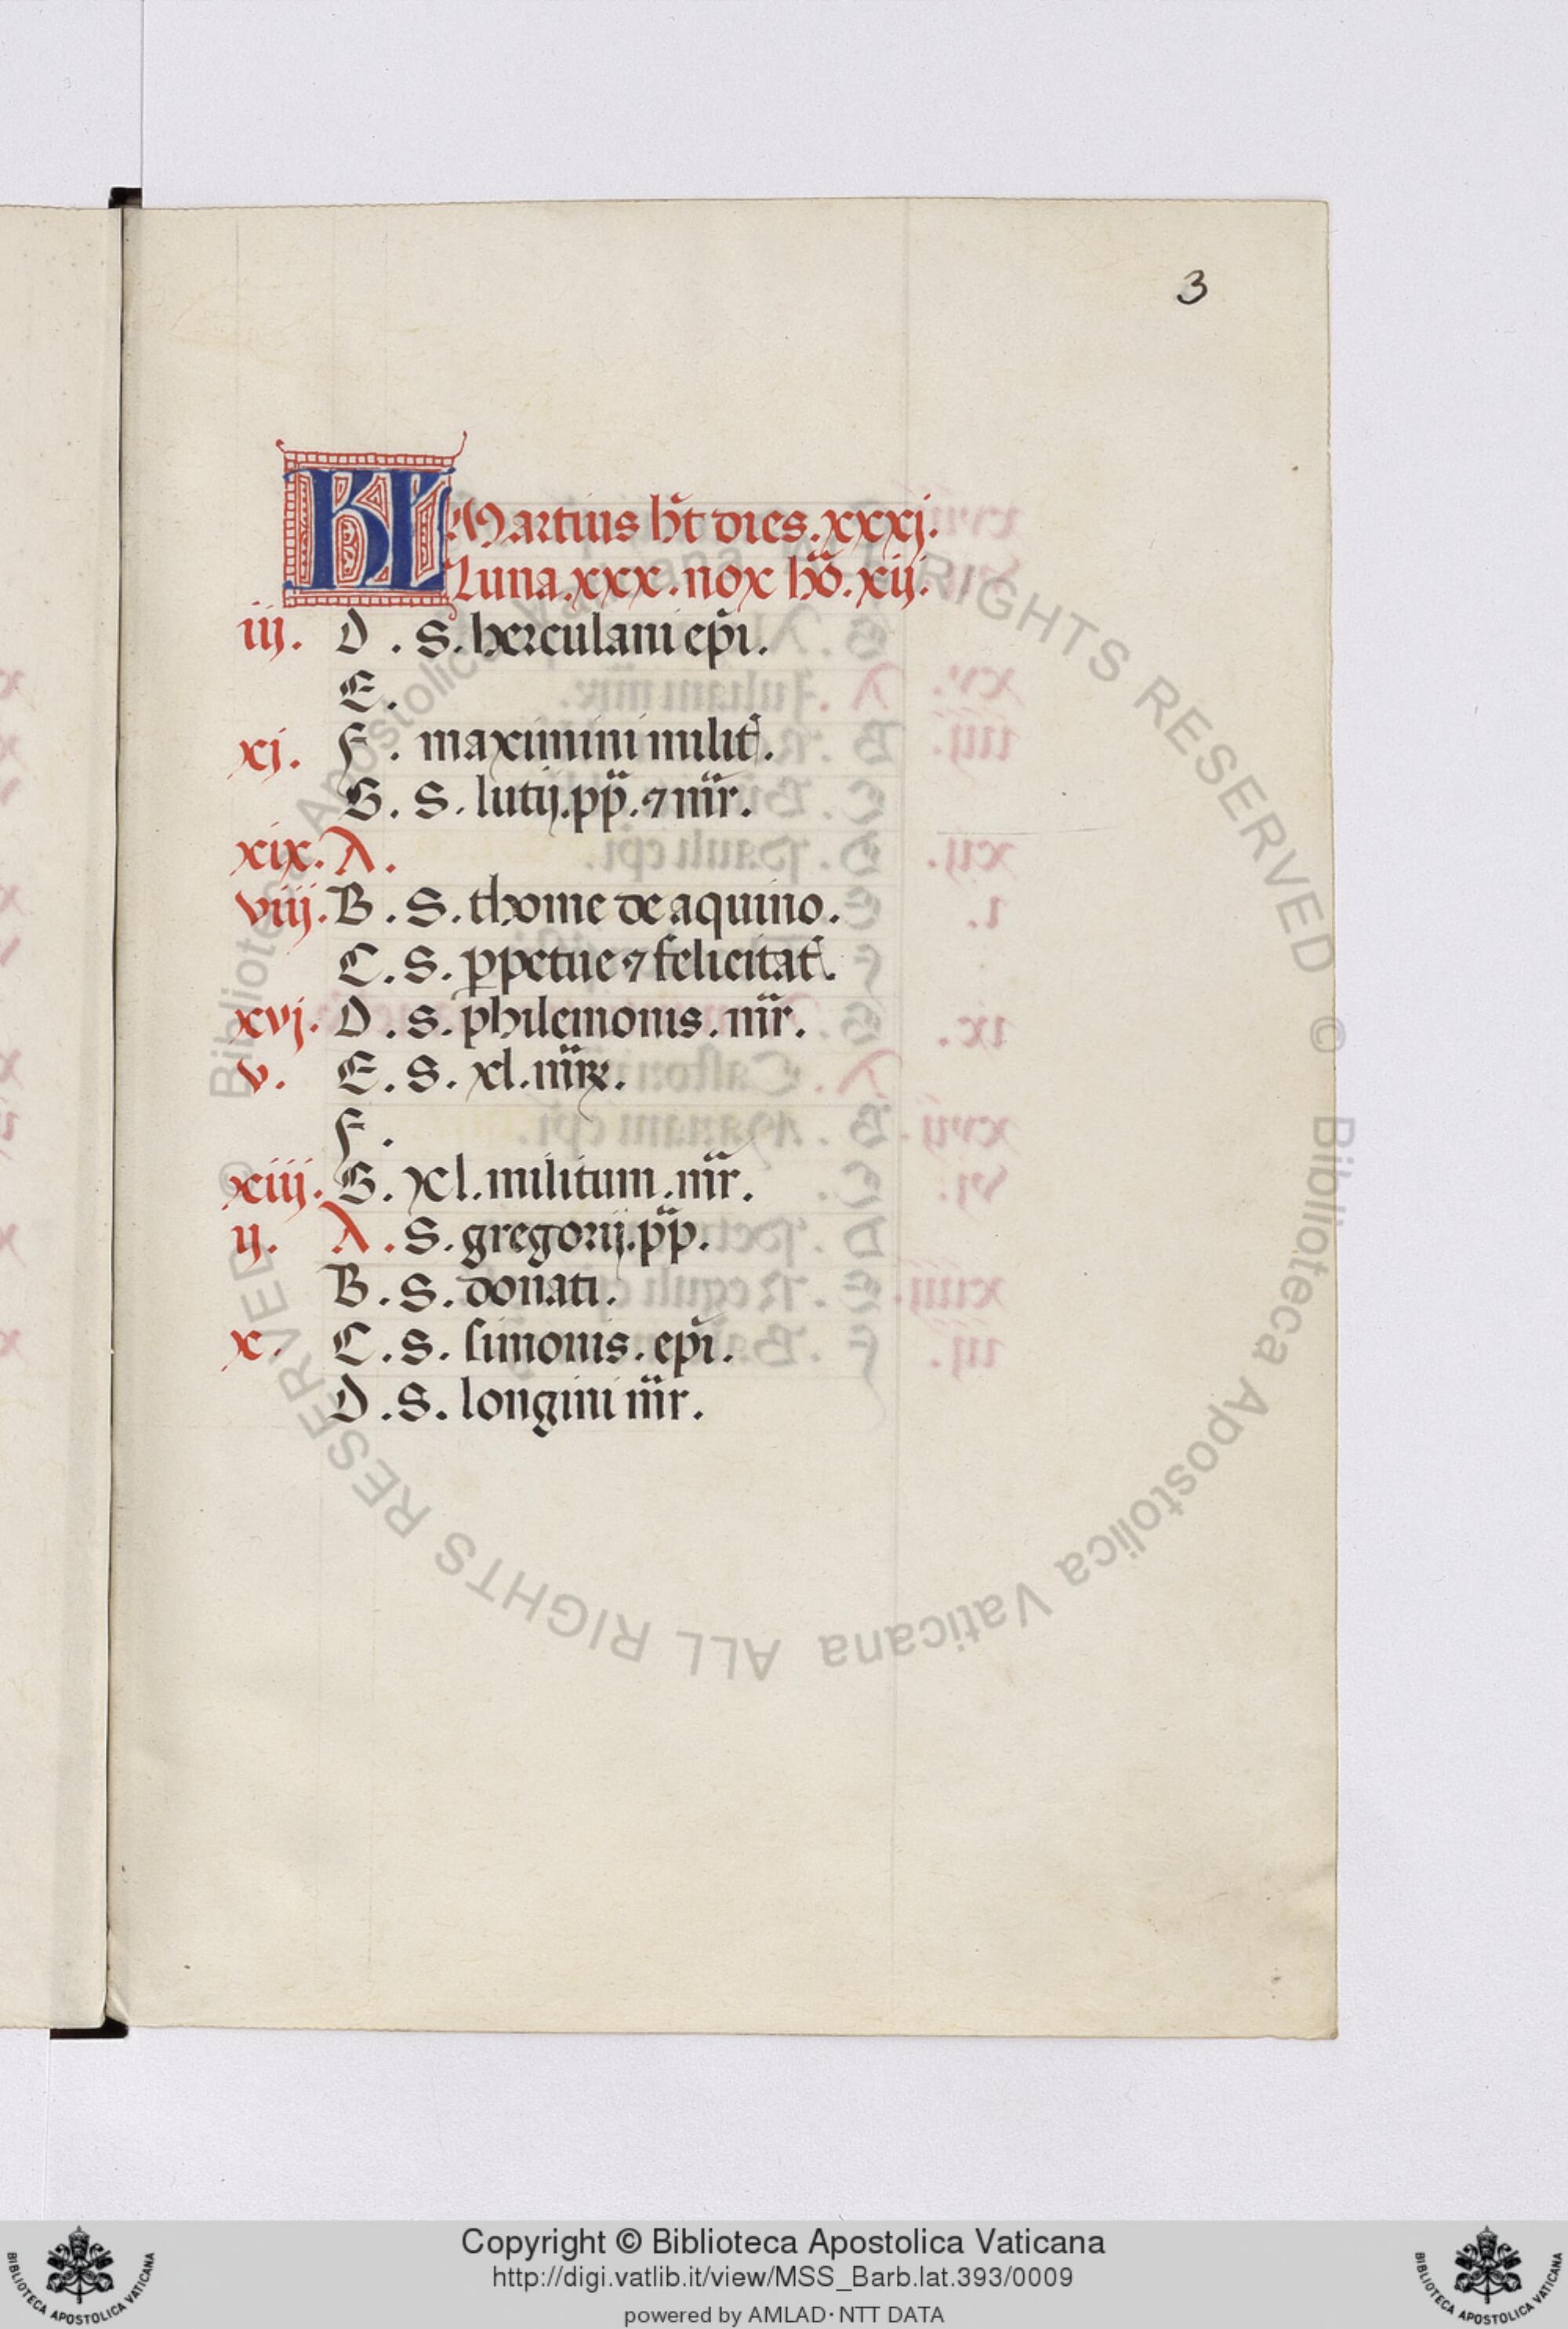 3
KL Martius ht dies. xxxj.
Luna. xxx. nox ho. xij.
iij. D. S. herculani epi.
E.
xj. F. maximini milit.
G. S. lutij. pp. ⁊ mr.
xix. A.
viij. B. S. thome de aquino.
C. S. ꝑpetue ⁊ felicitat.
xvj. D. S. philemonis. mr.
v. E. S. xl. mrꝝ.
F.
xiij. G. xl. militum. mr.
ij. A. S. gregorij. pp.
B. S. donati.
x. C. S. simonis. epi.
D. S. longini mr.
© Biblioteca Apostolica Vaticana ALL RIGHTS RESERVED © Biblioteca Apostolica Vaticana ALL RIGHTS RESERVED
Copyright © Biblioteca Apostolica Vaticana
http://digi.vatlib.it/view/MSS_Barb.lat.393/0009
powered by AMLAD·NTT DATA
BIBLIOTECA APOSTOLICA VATICANA
BIBLIOTECA APOSTOLICA VATICANA